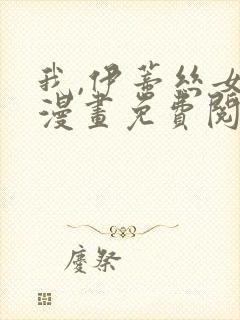 我,伊蒂絲女
漫畫免費閱
慶祭